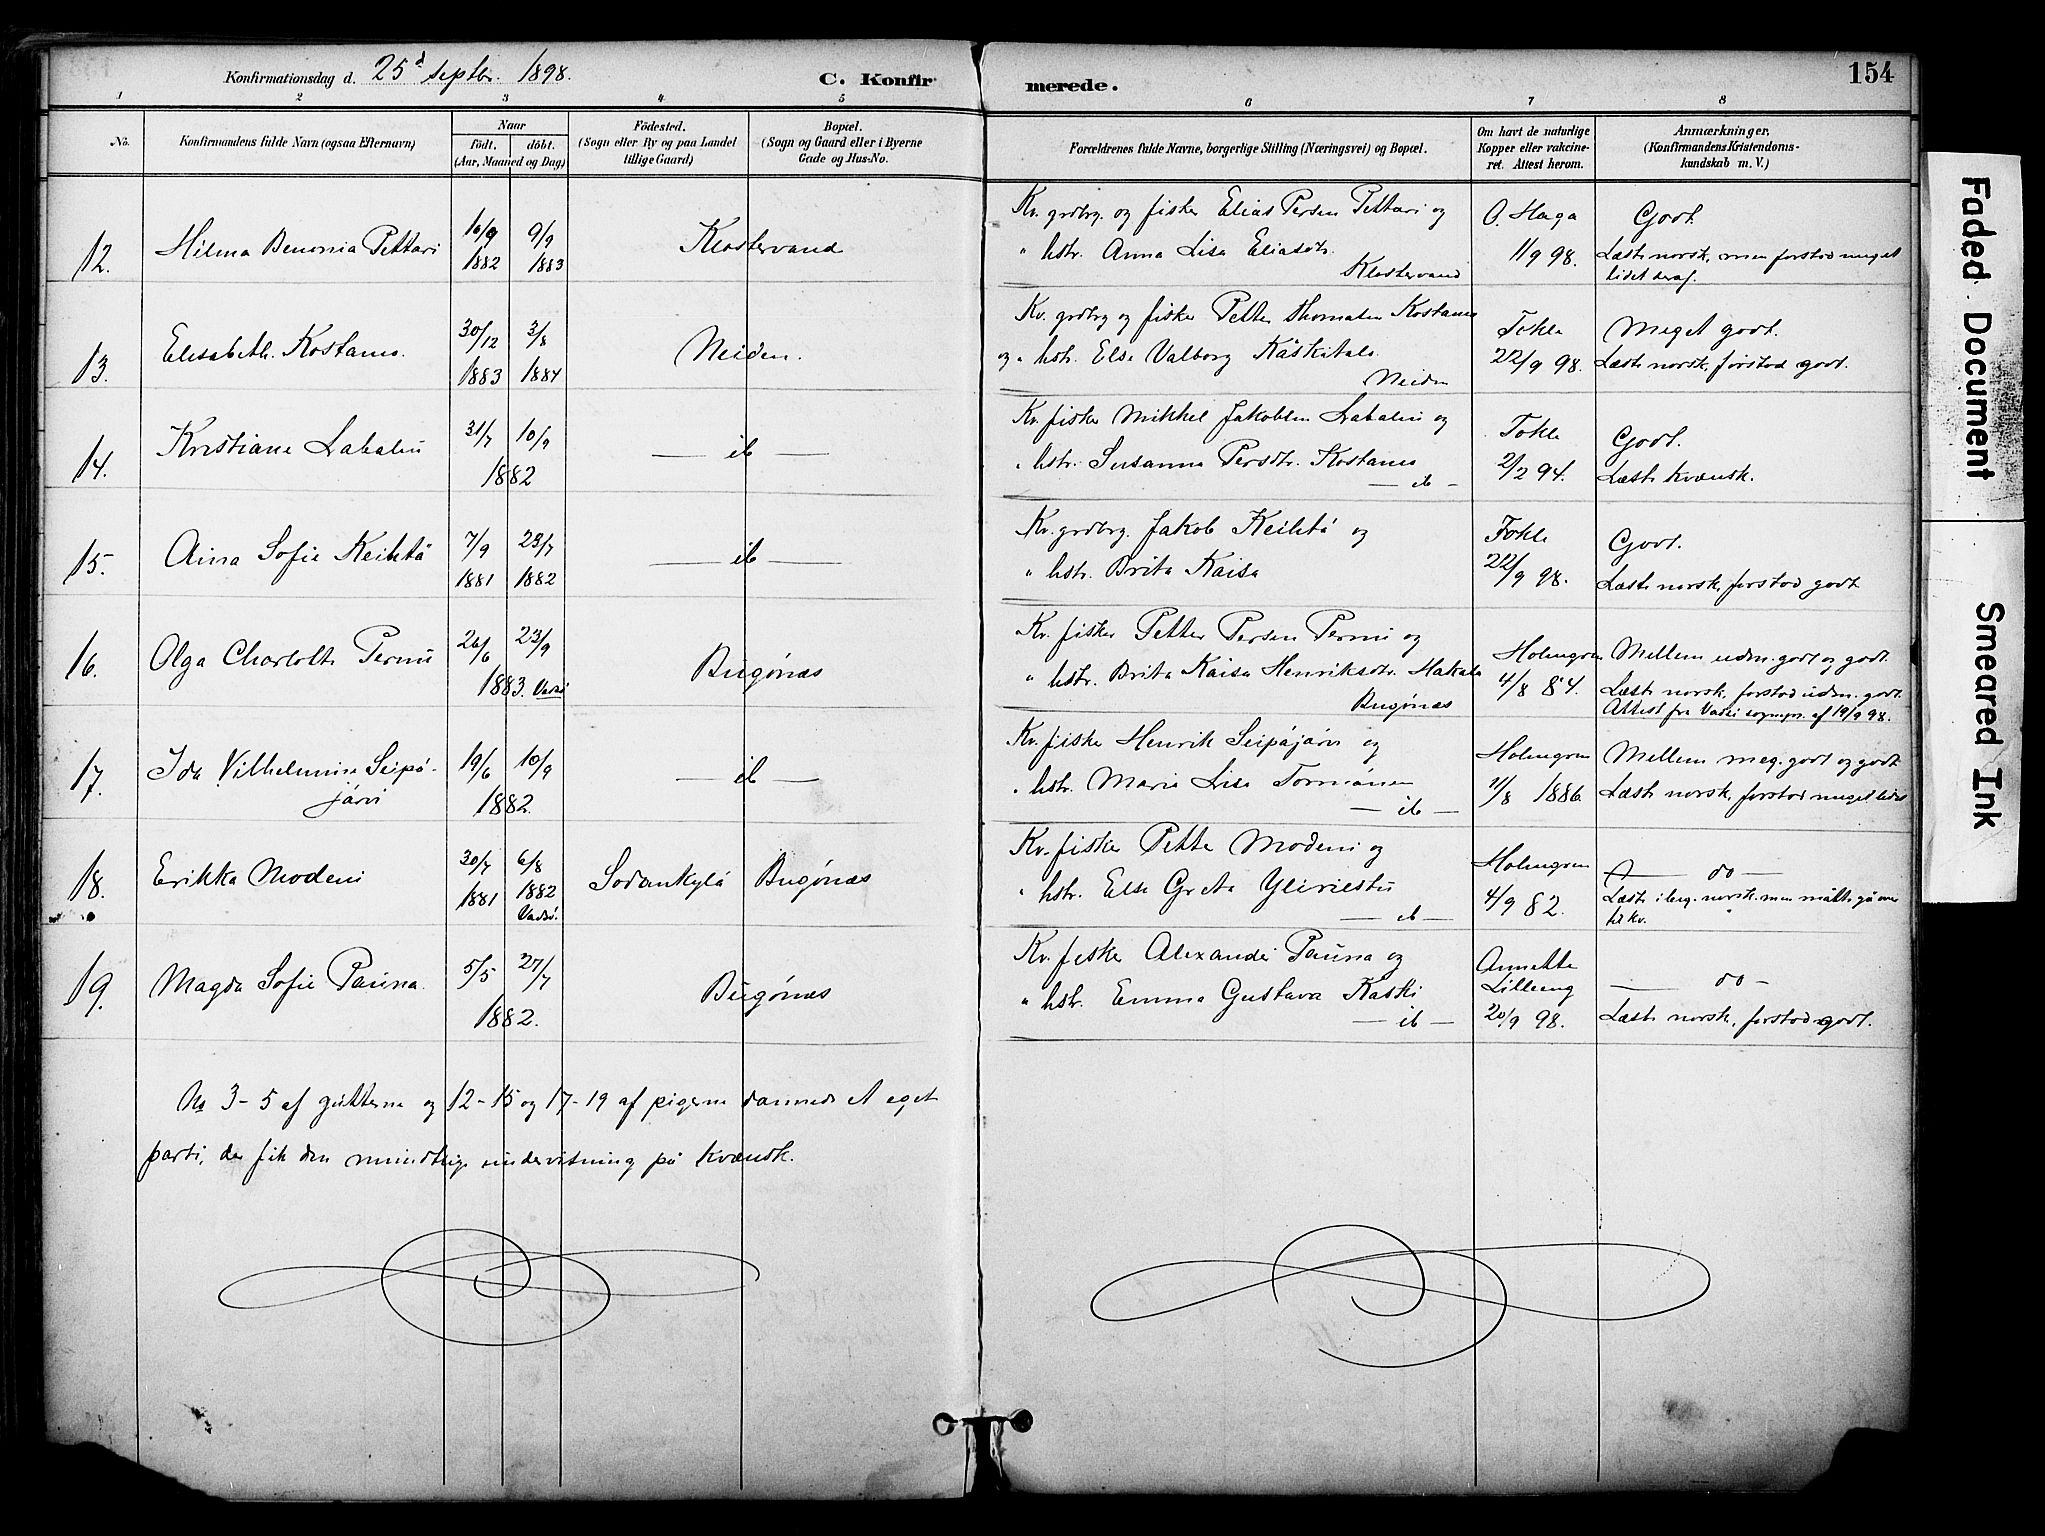 Konfirmationsdag d. 25d septbr. 1898. C. Konfirmerede. 154
1 2 3 4 5 6 7 8
No. Konfirmandens fulde Navn (ogsaa Efternavn) Naar födt. döbt. (Aar, Maaned og Dag) Födested. (Sogn eller By og paa Landet tillige Gaard) Bopæl. (Sogn og Gaard eller i Byerne Gade og Hus-No. Forældrenes fulde Navne, borgerlige Stilling (Næringsvei) og Bopæl. Om havt de naturlige Kopper eller vakcineret. Attest herom. Anmærkninger, (Konfirmandens Kristendomskundskab m. V.)
12. Hilma Benonia Pettari 16/9 1882 9/9 1883 Klostervand
Kv. grdbrg. og fisker Elias Persen Pettari og
" hstr. Anna Lisa Eliasdtr.
Klostervand
O. Haga
11/9 98.
Godt.
Læste norsk, men forstod meget
lidet deraf.
13. Elisabeth Kostamo. 30/12 1883 3/8 1884 Neiden.
Kv. grdbrg og fisker Petter Thomasen Kostamo
og " hstr. Else Valborg Käskitalo.
Neiden
Tokle
22/9 98.
Meget godt.
Læste norsk, forstod godt.
14. Kristiane Labahu 31/7 10/9 1882 — ib —
Kv. fisker Mikkel Jakobsen Labahu og
" hstr. Susanna Persdtr. Kostamo
— ib —
Tokle
2/2 94.
Godt.
Læste kvænsk.
15. Aina Sofie Keiktä 7/9 1881 23/7 1882 — ib —
Kv. grdbrg. Jakob Keiktä og
" hstr. Brita Kaisa
Tokle
22/9 98.
Godt.
Læste norsk, forstod godt
16. Olga Charlotte Permi 26/6 23/9 1883. Vadsö Bugönæs
Kv. fisker Petter Persen Permi og
" hstr. Brita Kaisa Henriksdtr. Hakala
Bugönæs
Holmgren
4/8 84.
Mellem udm. godt og godt.
Læste norsk, forstod udm. godt.
Attest fra Vadsö sognepr. af 19/9 98.
17. Ida Vilhelmine Seipä-
järvi 19/6 10/9 1882. — ib —
Kv. fisker Henrik Seipäjärvi og
" hstr. Maria Lisa Tormänen
— ib —
Holmgren
11/8 1886.
Mellem meg. godt og godt
Læste norsk, forstod meget lidet
18. Erikka Modeni 30/7 1881 6/8 1882 Vadsö. Sodankylä Bugönæs
Kv. fisker Petter Modeni og
" hstr. Else Greta Yliriesto
— ib —
Holmgren
4/9 82.
— do —
Læste i beg. norsk, men måtte gå over
til kv.
19. Magda Sofie Pauna. 5/5 27/7 1882. Bugönæs
Kv. fisker Alexander Pauna og
" hstr. Emma Gustava Kaski
— ib —
Annette
Lilleeng
20/9 98.
— do —
Læste norsk, forstod godt.
No 3-5 af gutterne og 12-15 og 17-19 af pigerne dannede et eget
parti, der fik den mundtlige undervisning på kvænsk.
Faded Document
Smeared Ink